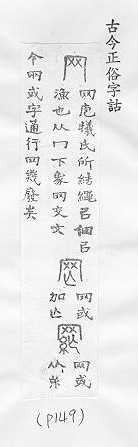 古今正俗字詁
网
网庖犧氏所結繩㠯佃㠯
漁也从冂下象网交文
罔
网或
加亡
網
网或
从糸
今兩或字通行网幾矣
(p149)